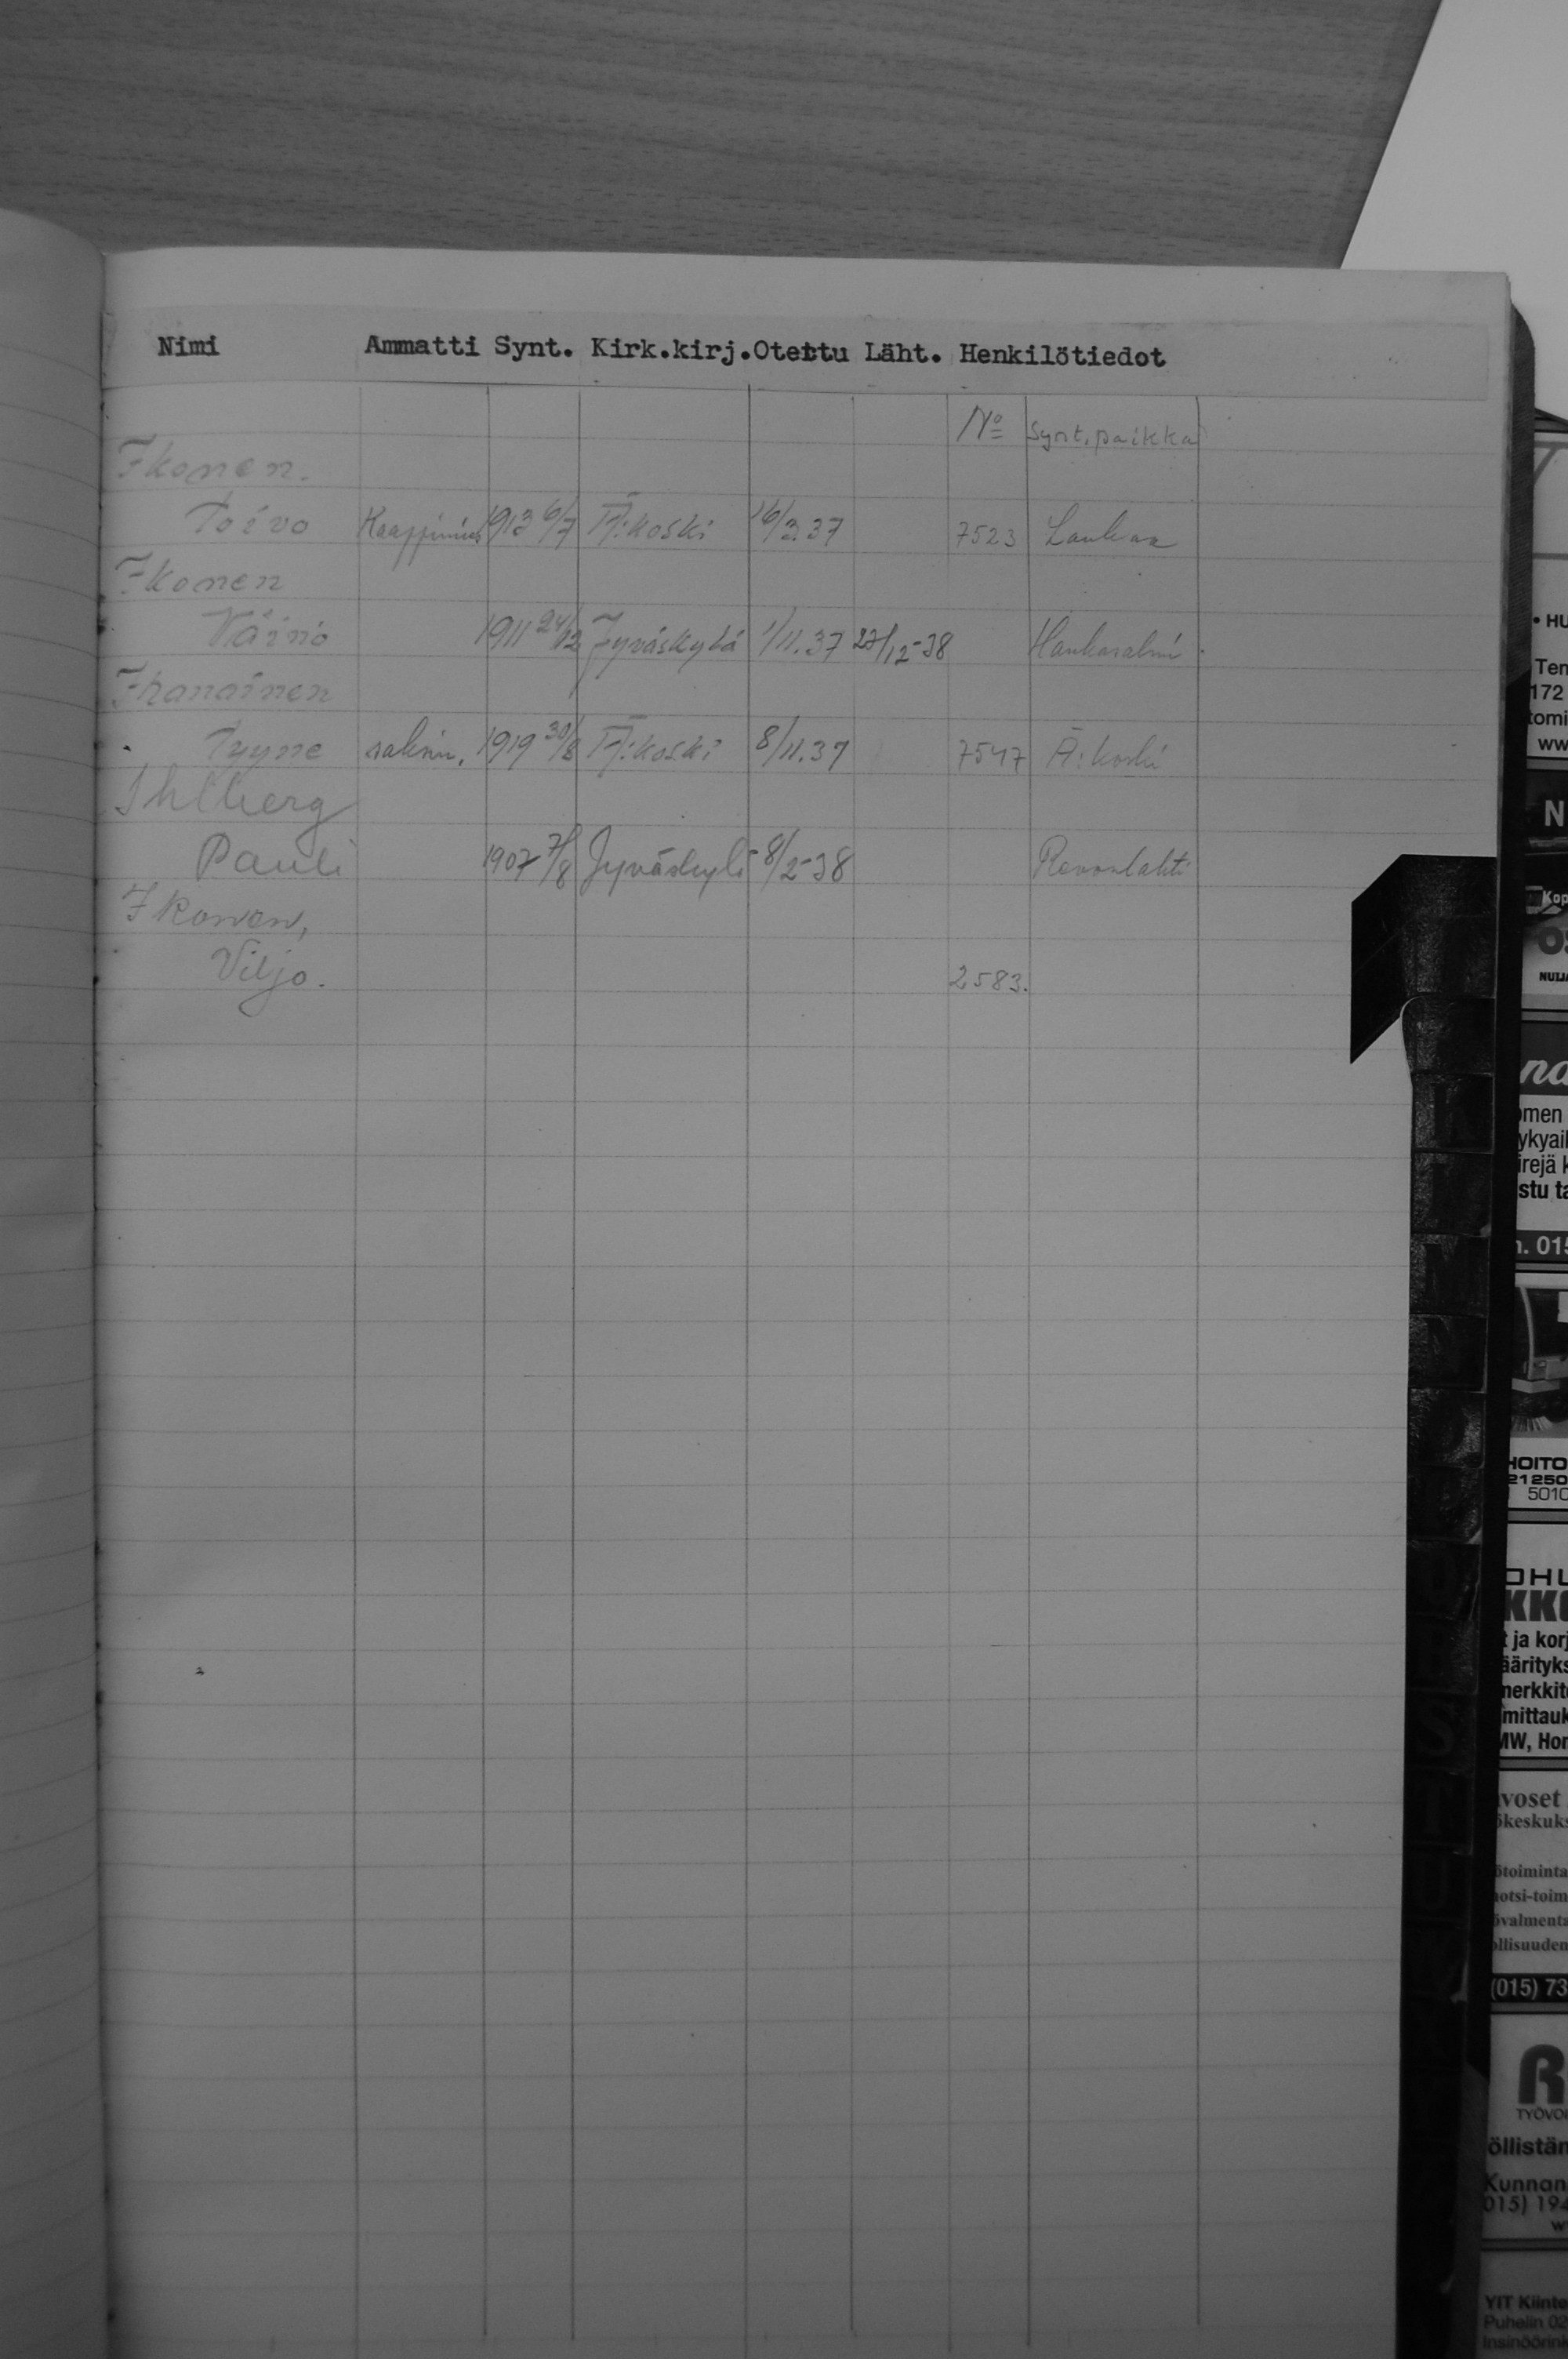 Nimi Ammatti Synt. Kirk.kirj. Otettu Läht. Henkilötiedot
No Synt.paikka
Ikonen.
Toivo 1913 6/7 Ä:koski 16/3.37 7523 Laukaa
Ikonen
Väinö 1911 24/12 Jyväskylä 1/11.37 27/12-38 Hankasalmi
Ihanainen
Tyyne 1919 30/8 Ä:koski 8/11.37 7547 Ä:koski
Ihlberg
Pauli 1907 7/8 Jyväskylä 8/2-38 Revonlahti
Ikonen,
Viljo. 2583.
• HU
172
ww
N
Kop
NUIJA
na
omen
ykyail
irejä k
stu ta
n. 015
HOITO
21250
5010
OHU
KKI
t ja korj
äärityks
merkkit
mittauk
MW, Hon
voset
ökeskuks
ötoiminta
otsi-toim
övalmenta
ollisuuden
(015) 73
R
TYÖVOI
öllistän
Kunnan
015) 194
w
YIT Kiinte
Puhelin 02
Insinöörink